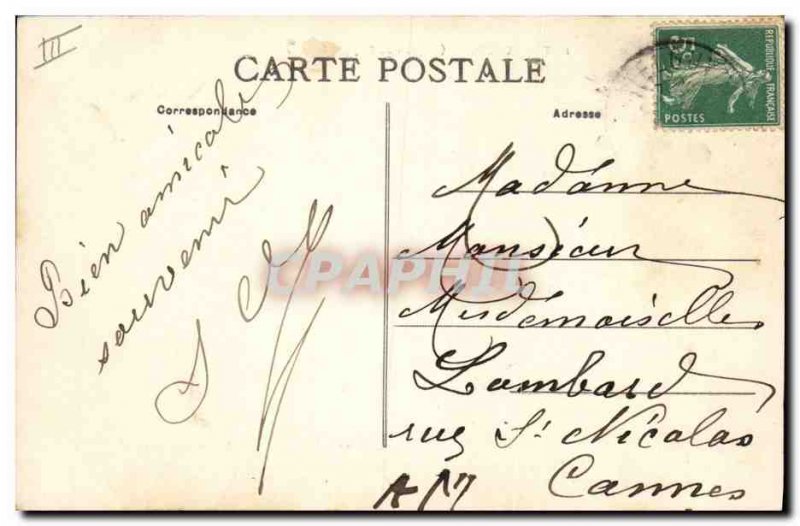 III
CARTE POSTALE
Correspondance
Adresse
5c
REPUBLIQUE FRANÇAISE
POSTES
Bien amical
souvenir
Madame
Monsieur
Mesdemoiselles
Lombard
rue St Nicolas
Cannes
A M
CPAPHIL